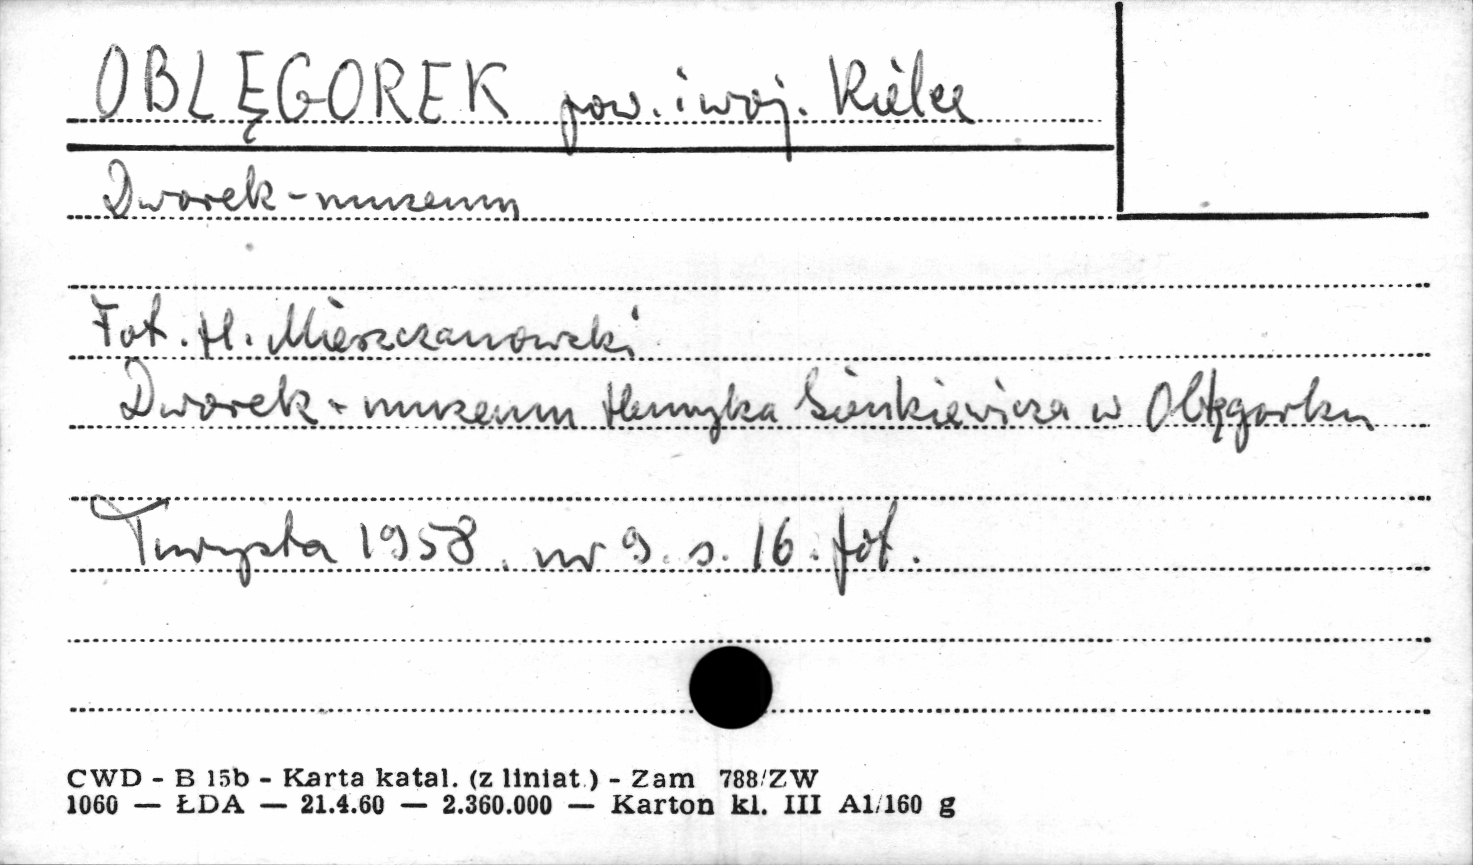 OBLĘGOREK pow. i woj. Kielce
Dworek-muzeum
Fot. H. Mierzczanowski
Dworek-muzeum Henryka Sienkiewicza w Oblęgorku
Turysta 1958. nr 9. s. 16. fot.
CWD - B 15b - Karta katal. (z liniat.) - Zam 788/ZW
1060 — ŁDA — 21.4.60 — 2.360.000 — Karton kl. III A1/160 g